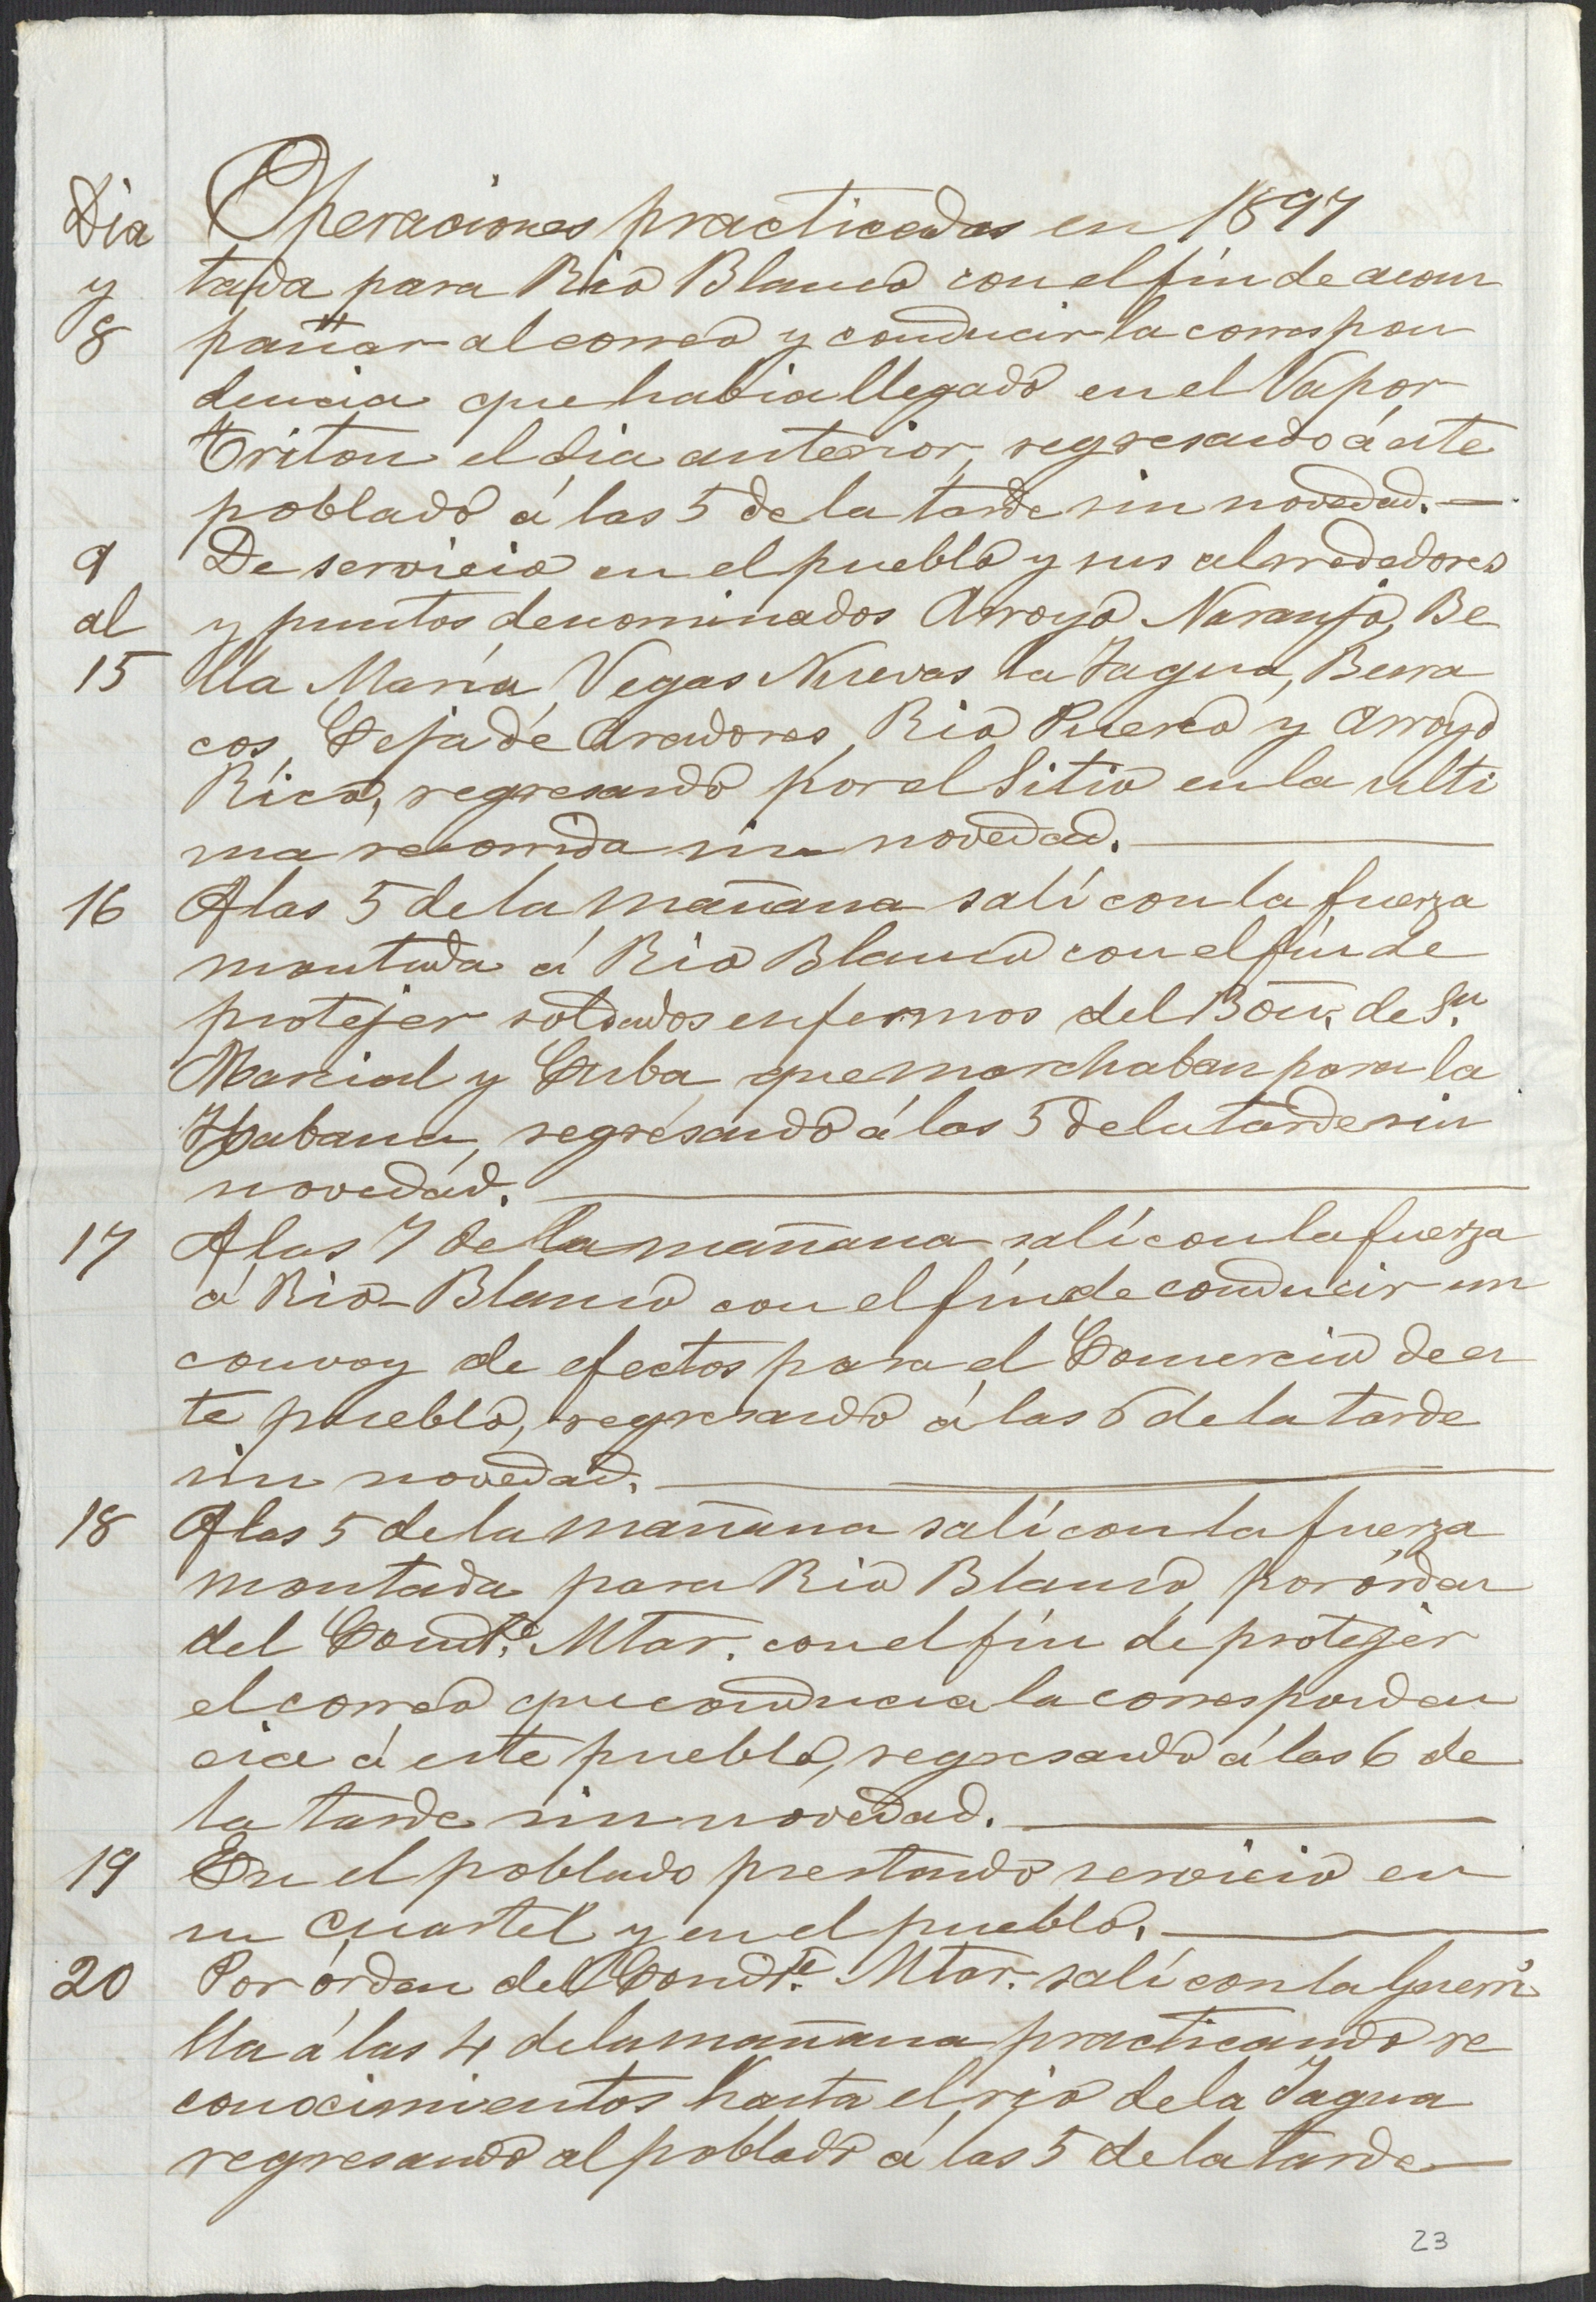 Dia Operaciones practicadas en 1897
y tada para Rio Blanco con el fín de acom
8 pañar al correo y conducir la correspon
dencia que habia llegado en el Vapor
Triton el dia anterior, regresando á este
poblado á las 5 de la tarde sin novedad. —
9 De servicio en el pueblo y sus alrrededores
al y puntos denominados Arroyo Naranjo, Be
15 lla María, Vegas Nuevas la Jagua, Berra
cos, Ceja de Aradores, Rio Puerco y Arroyo
Rico, regresando por el Sitio en la ulti
ma recorrida sin novedad. —
16 A las 5 de la mañana salí con la fuerza
montada á Rio Blanco con el fín de
protejer soldados enfermos del Bón. de Sn.
Marcial y Cuba que marchaban para la
Habana, regresando á las 5 de la tarde sin
novedad. —
17 A las 7 de la mañana salí con la fuerza
á Rio-Blanco con el fín de conducir un
convoy de efectos para el Comercio de es
te pueblo, regresando á las 6 de la tarde
sin novedad. —
18 A las 5 de la mañana salí con la fuerza
montada para Rio Blanco, por órden
del Comdte. Mtar. con el fín de protejer
el correo que conducia la corresponden
cia á este pueblo, regresando á las 6 de
la tarde sin novedad. —
19 En el poblado prestando servicio en
su Cuartel y en el pueblo. —
20 Por órden del Comdte. Mtar. salí con la Guerri
lla á las 4 de la mañana practicando re
conocimientos hasta el rio de la Jagua
regresando al poblado á las 5 de la tarde —
23